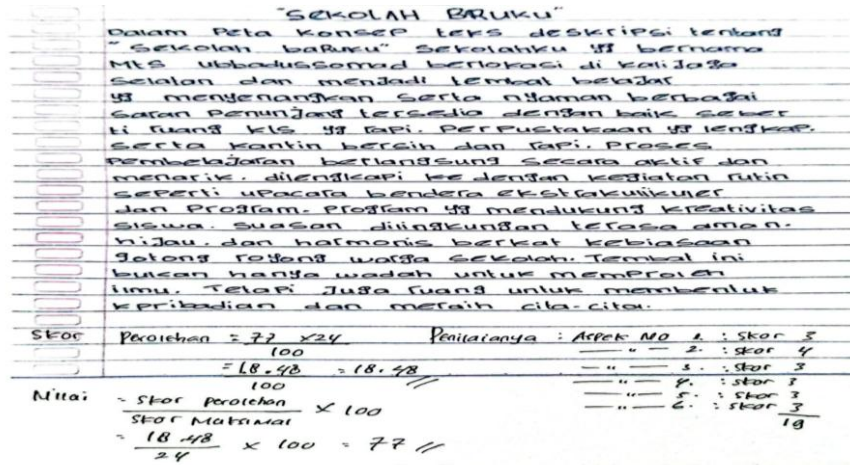 "SEKOLAH BARUKU"
Dalam Peta Konsep teks deskripsi tentang
"Sekolah baruku" Sekolahku yg bernama
Mts Ubbadussomad berlokasi di kalijaga
Selatan dan menjadi tempat belajar
yg menyenangkan serta nyaman berbagai
saran penunjang tersedia dengan baik seber
ti ruang kls yg rapi. Perpustakaan yg lengkap.
serta kantin bersih dan rapi. Proses
Pembelajaran berlangsung secara aktif dan
menarik. dilengkapi ke dengan kegiatan rutin
seperti upacara bendera ekstrakulikuler
dan Program-Program yg mendukung kreativitas
siswa. suasan dilingkungan terasa aman.
hijau. dan harmonis berkat kebiasaan
gotong royong warga sekolah. Tempat ini
bukan hanya wadah untuk memproleh
ilmu. Tetapi Juga ruang untuk membentuk
kpribadian dan meraih cita-cita.
Skor Perolehan = 77 x24 Penilaianya : Aspek No 1. : Skor 3
100 — " — 2. : skor 4
= 18.48 = 18.48 — " — 3. : skor 3
100 — " — 4. : skor 3
Nilai = Skor perolehan x 100 — " — 5. : skor 3
Skor Maksimal — " — 6. : skor 3
19
= 18.48 x 100 = 77 //
24